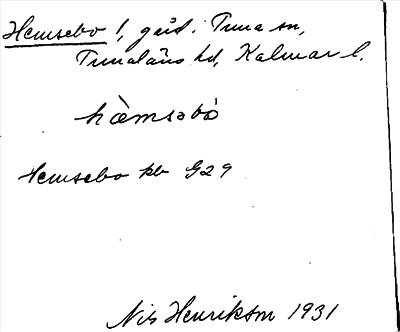 Hemsebo 1, gård i Tuna sn,
Tunaläns hd, Kalmar l.
hæ̀msəbò
Hemsebo kb G29
Nils Henrikson 1931